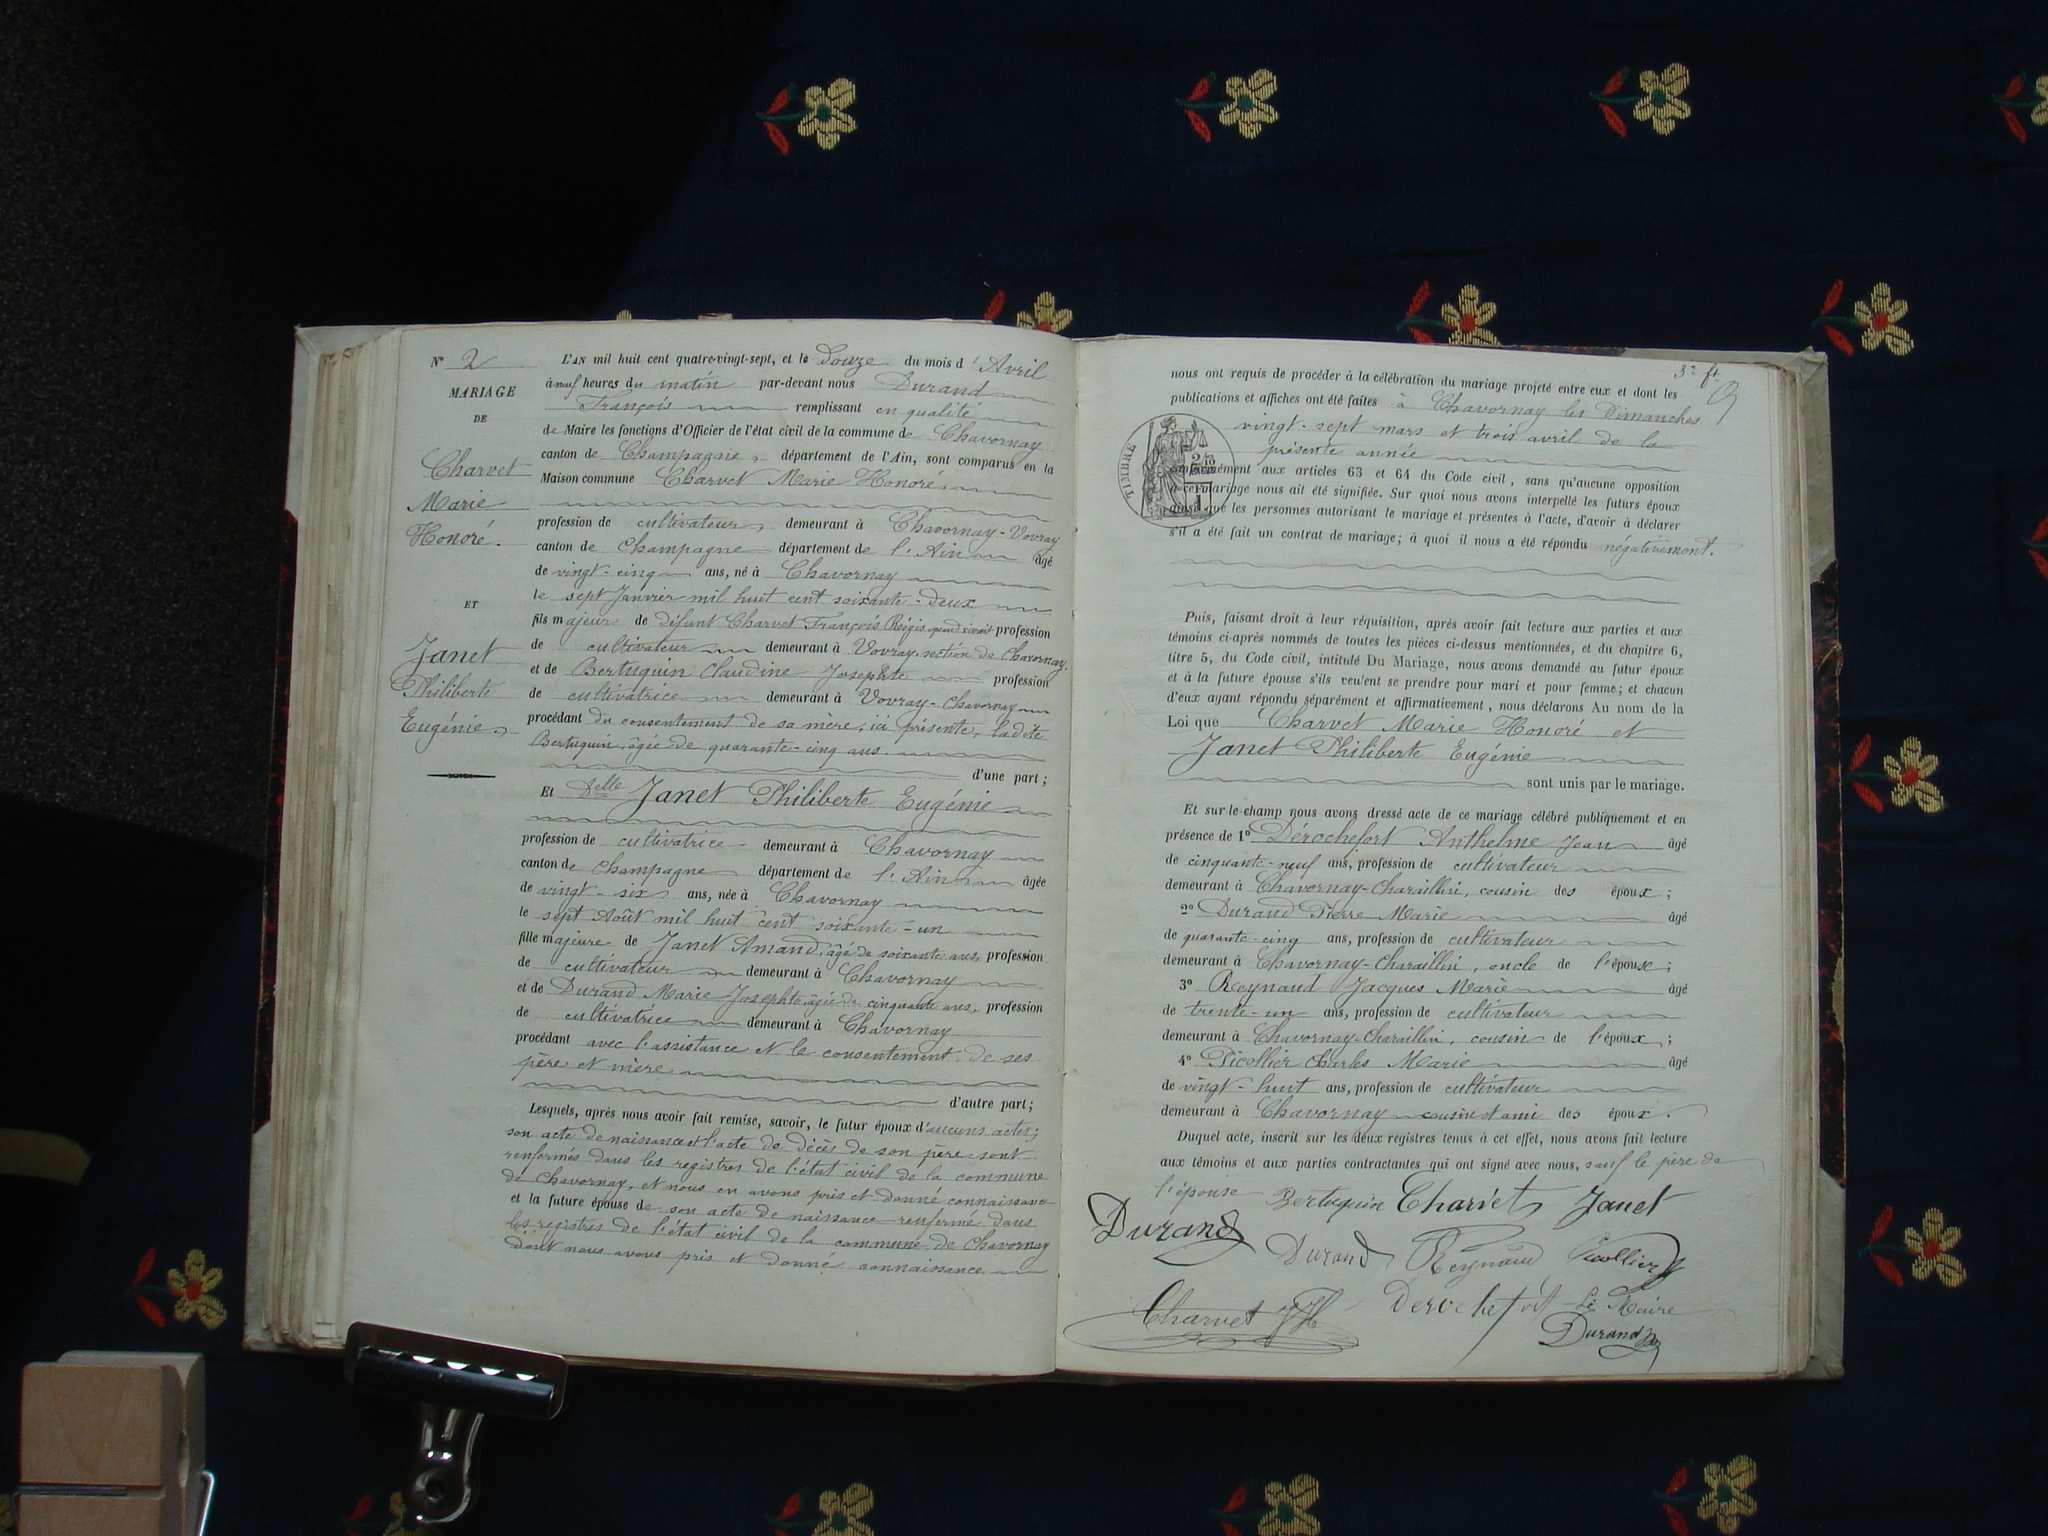 N° 2
MARIAGE
DE
Charvet
Marie
Honoré.
ET
Janet
Philiberte
Eugénie
L'AN mil huit cent quatre-vingt-sept, et le Douze du mois d'Avril
à neuf heures du matin par-devant nous Durand
François remplissant en qualité
de Maire les fonctions d'Officier de l'état civil de la commune de Chavornay
canton de Champagne, département de l'Ain, sont comparus en la
Maison commune Charvet Marie Honoré
profession de cultivateur, demeurant à Chavornay-Vovray
canton de Champagne département de l'Ain âgé
de vingt-cinq ans, né à Chavornay
le sept Janvier mil huit cent soixante-deux
fils majeur de défunt Charvet François Régis quand vivait profession
de cultivateur demeurant à Vovray, section de Chavornay,
et de Bertuquin Claudine Josephte profession
de cultivatrice demeurant à Vovray-Chavornay
procédant du consentement de sa mère, ici présente, ladite
Bertuquin, âgée de quarante-cinq ans.
d'une part;
Et Delle Janet Philiberte Eugénie
profession de cultivatrice demeurant à Chavornay
canton de Champagne département de l'Ain âgée
de vingt-six ans, née à Chavornay
le sept Août mil huit cent soixante-un
fille majeure de Janet Amand, âgé de soixante ans, profession
de cultivateur demeurant à Chavornay
et de Durand Marie Josephte âgée de cinquante ans, profession
de cultivatrice demeurant à Chavornay
procédant avec l'assistance et le consentement de ses
père et mère
d'autre part;
Lesquels, après nous avoir fait remise, savoir, le futur époux d'aucuns actes;
son acte de naissance et l'acte de décès de son père sont
renfermés dans les registres de l'état civil de la commune
de Chavornay, et nous en avons pris et donné connaissance
et la future épouse de son acte de naissance renfermé dans
les registres de l'état civil de la commune de Chavornay
dont nous avons pris et donné connaissance
3e ft.
nous ont requis de procéder à la célébration du mariage projeté entre eux et dont les
publications et affiches ont été faites à Chavornay les Dimanches
vingt-sept mars et trois avril de la
présente année
TIMBRE
conformément aux articles 63 et 64 du Code civil, sans qu'aucune opposition
mariage nous ait été signifiée. Sur quoi nous avons interpellé les futurs époux
que les personnes autorisant le mariage et présentes à l'acte, d'avoir à déclarer
s'il a été fait un contrat de mariage; à quoi il nous a été répondu négativement.
Puis, faisant droit à leur réquisition, après avoir fait lecture aux parties et aux
témoins ci-après nommés de toutes les pièces ci-dessus mentionnées, et du chapitre 6,
titre 5, du Code civil, intitulé Du Mariage, nous avons demandé au futur époux
et à la future épouse s'ils veulent se prendre pour mari et pour femme; et chacun
d'eux ayant répondu séparément et affirmativement, nous déclarons Au nom de la
Loi que Charvet Marie Honoré et
Janet Philiberte Eugénie
sont unis par le mariage.
Et sur-le-champ nous avons dressé acte de ce mariage célébré publiquement et en
présence de 1° Dérochefort Anthelme Jean âgé
de cinquante-neuf ans, profession de cultivateur
demeurant à Chavornay-Charaillin, cousin des époux;
2° Durand Pierre Marie âgé
de quarante-cinq ans, profession de cultivateur
demeurant à Chavornay-Charaillin, oncle de l'épouse;
3° Reynaud Jacques Marie âgé
de trente-un ans, profession de cultivateur
demeurant à Chavornay-Charaillin, cousin de l'époux;
4° Picollier Charles Marie âgé
de vingt-huit ans, profession de cultivateur
demeurant à Chavornay cousin et ami des époux.
Duquel acte, inscrit sur les deux registres tenus à cet effet, nous avons fait lecture
aux témoins et aux parties contractantes qui ont signé avec nous, sauf le père de
l'épouse Bertuquin Charvet Janet
Durand
Durand Reynaud Picollier
Charvet Derochefort Le Maire
Durand